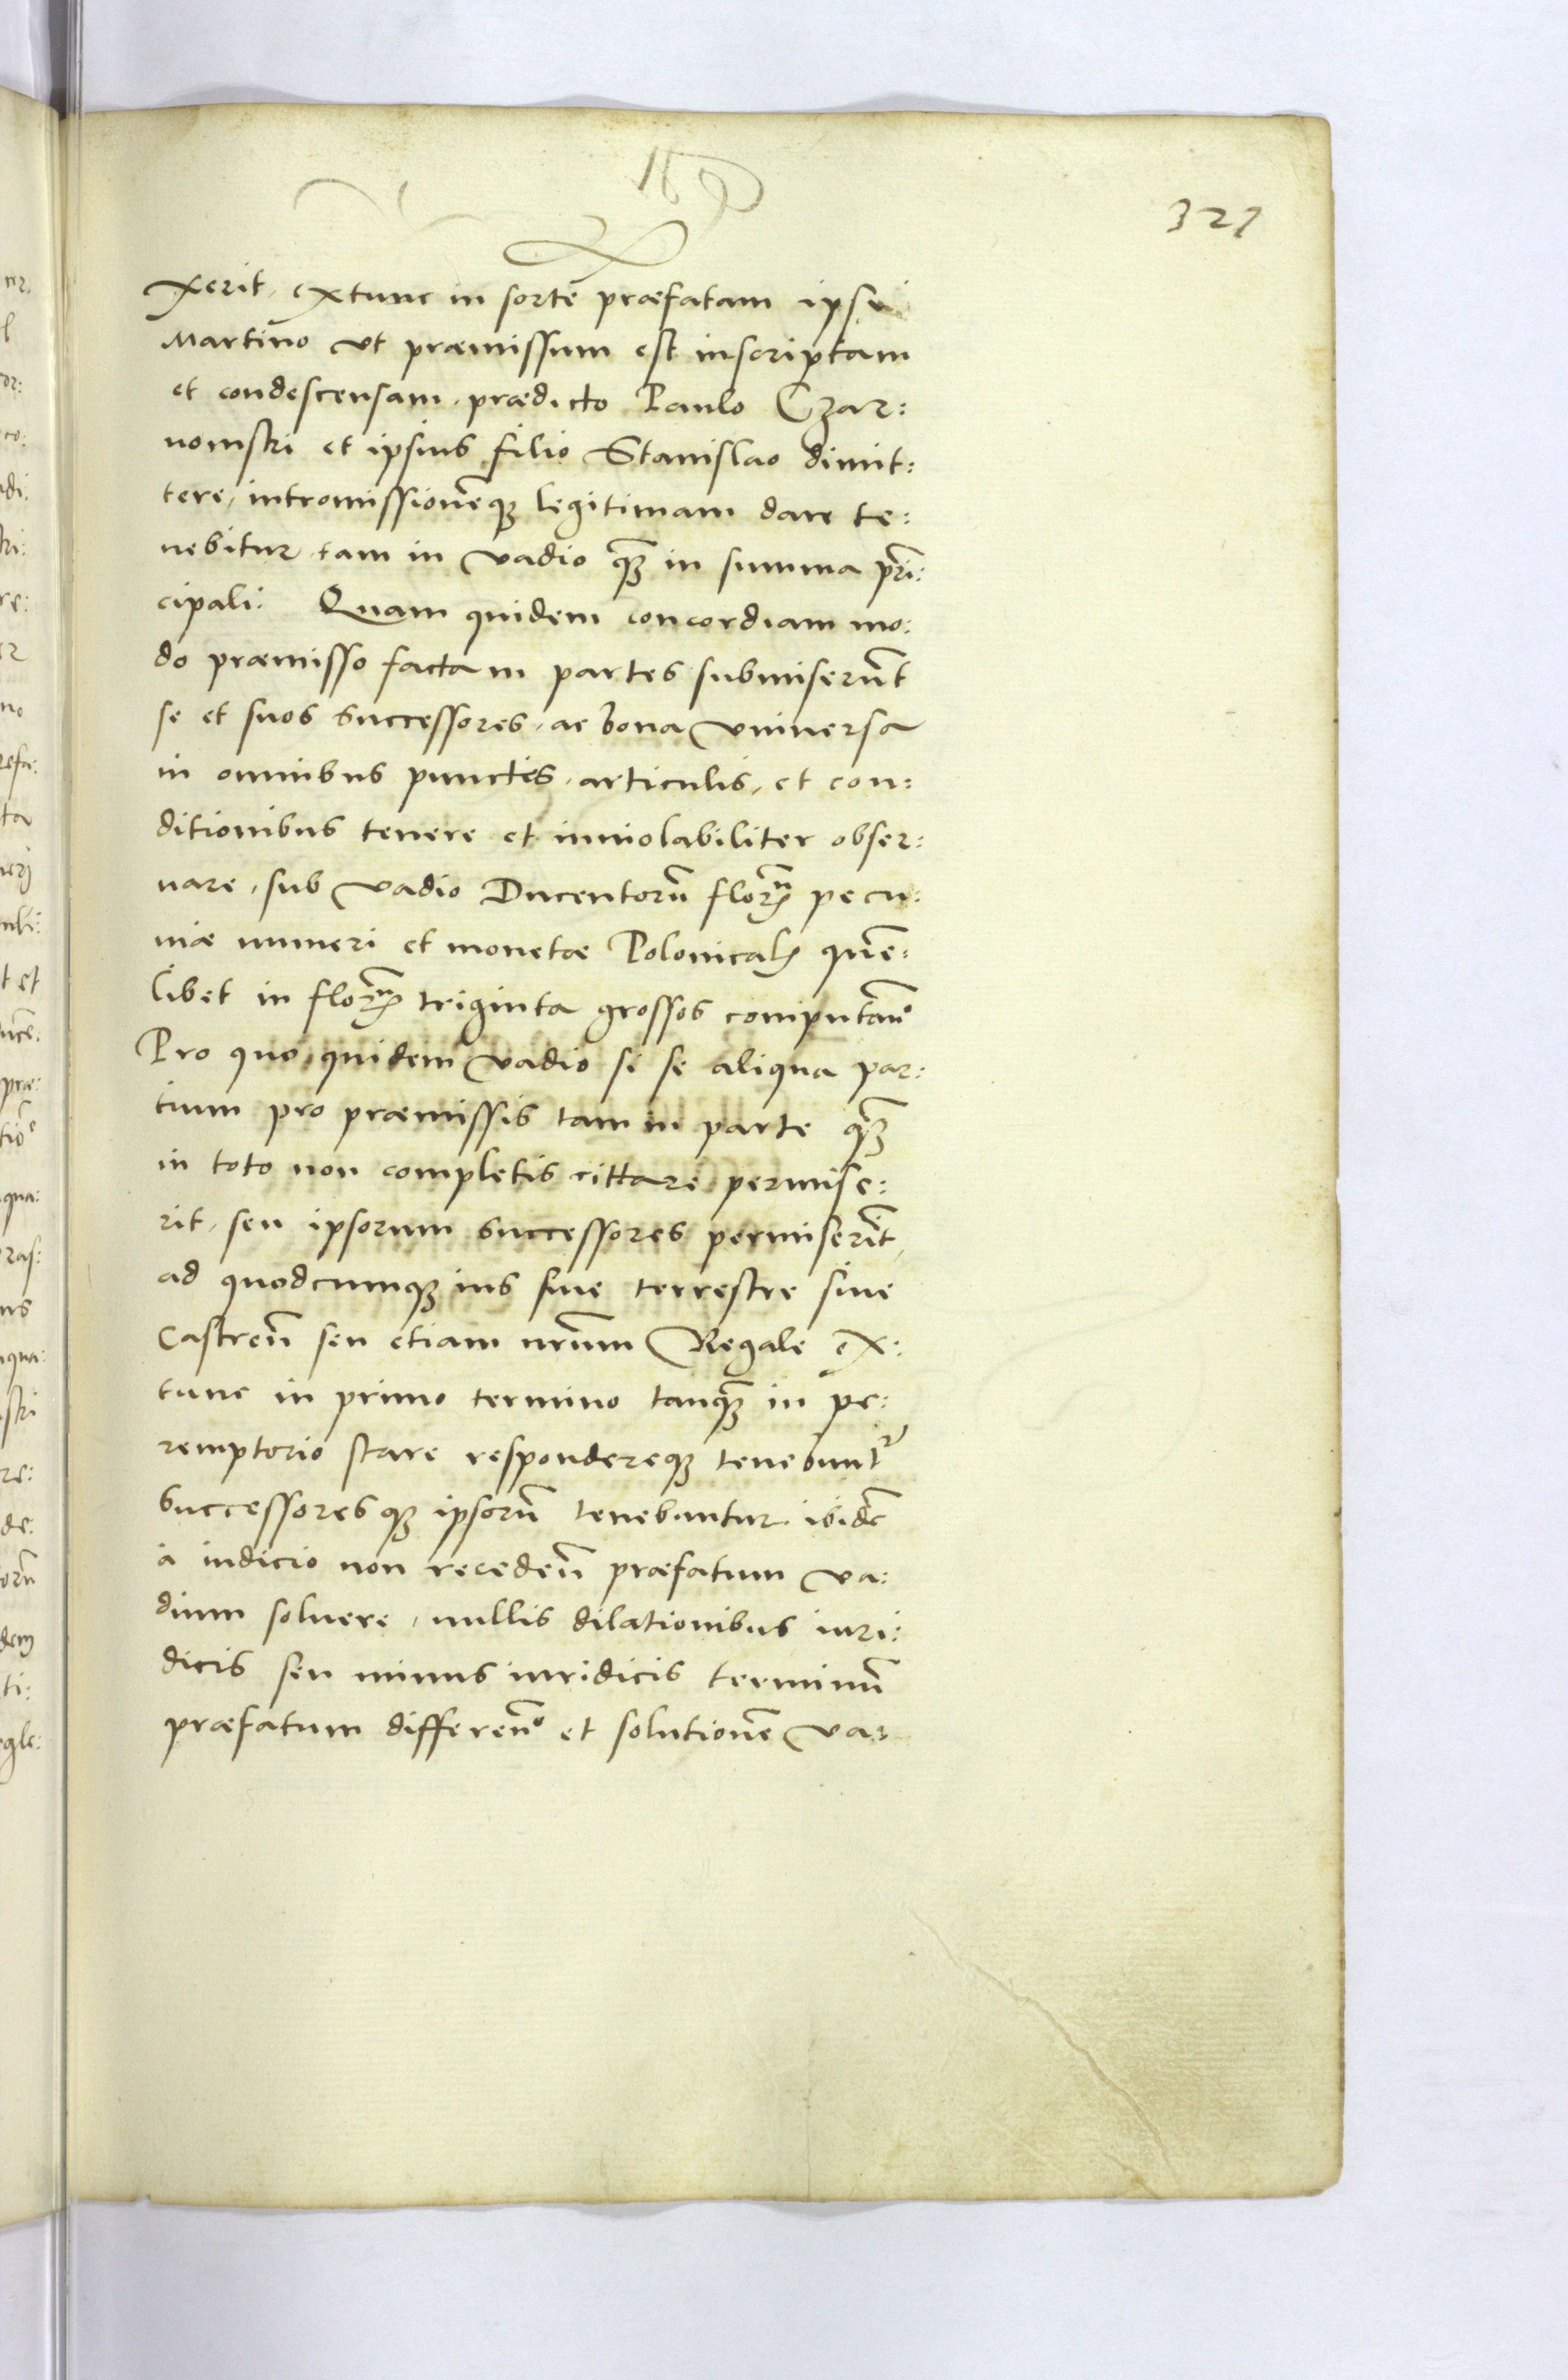 321
xerit, extunc in sortē præfatam ipsi
Martino ut præmissum est inscriptam
et condescensam, prædicto Paulo Czar:
nomski et ipsius filio Stanislao dimit:
tere, intromissionēq legitimam dare te:
nebitur tam in vadio q̃ in summa pri̅:
cipali: Quam quidem concordiam mo:
do præmisso factam partes submiserūt
se et suos successores, ac bona vniuersa
in omnibus punctis, articulis, et con:
ditionibus tenere et inuiolabiliter obser:
uare, sub vadio Ducentorū florn̄ pecu:
niæ numeri et monetæ Polonical quē:
libet in florn̄ triginta grossos computan̄o
Pro quo quidem vadio si se aliqua par:
tium pro præmissis tam in parte q̃
in toto non completis cittare permise:
rit, seu ipsorum successores permiserīt,
ad quodcumq ius siue terrestre siue
Castren̄ seu etiam nr̄um Regale ex:
tunc in primo termino tanq̃ in pe:
remptorio stare respondereq tenebuntr
successoresq ipsorū tenebuntur ibidē
à iudicio non receden̄ præfatum va:
dium soluere, nullis dilationibus iuri:
dicis seu minus iuridicis terminū
præfatum differen̄o et solutionē va: